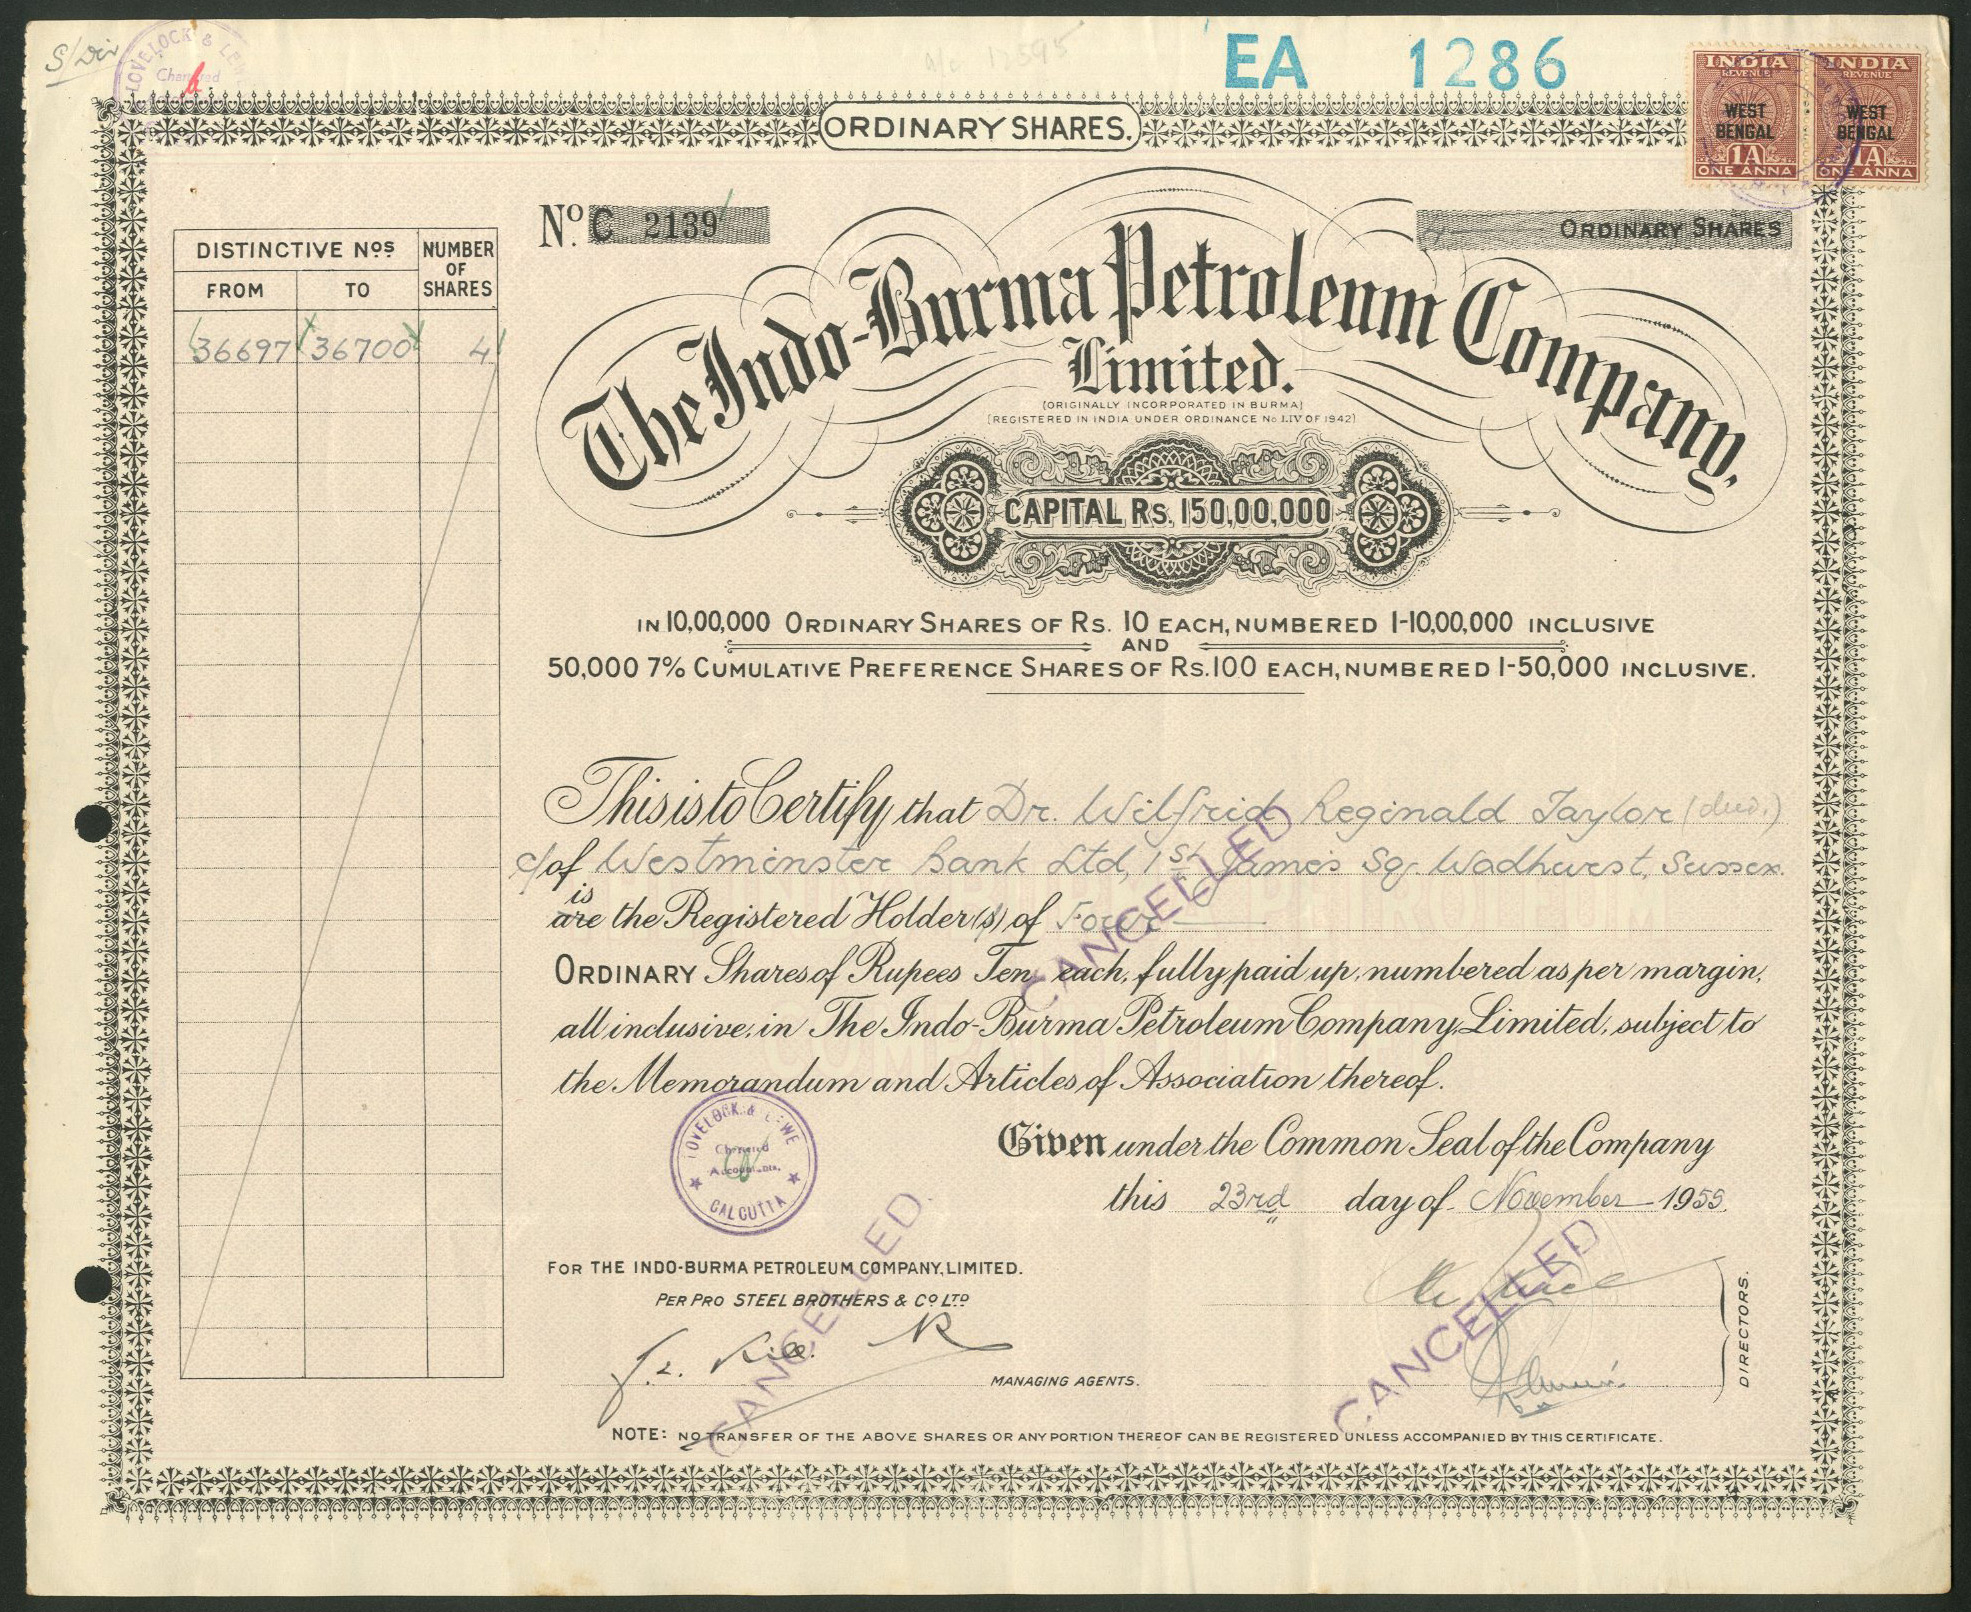 S/Dir
LOVELOCK & LEWE
Chartered
A/c 12595
EA 1286
ORDINARY SHARES.
INDIA
REVENUE
WEST
BENGAL
1A
ONE ANNA
INDIA
REVENUE
WEST
BENGAL
1A
ONE ANNA
No. C 2139
ORDINARY SHARES
DISTINCTIVE Nos NUMBER OF SHARES
FROM TO
36697 36700 4
The Indo-Burma Petroleum Company,
Limited.
(ORIGINALLY INCORPORATED IN BURMA)
(REGISTERED IN INDIA UNDER ORDINANCE No LIV OF 1942)
CAPITAL Rs. 150,00,000
IN 10,00,000 ORDINARY SHARES OF Rs. 10 EACH, NUMBERED 1-10,00,000 INCLUSIVE
AND
50,000 7% CUMULATIVE PREFERENCE SHARES OF Rs. 100 EACH, NUMBERED 1-50,000 INCLUSIVE.
This is to Certify that Dr. Wilfrid Reginald Taylor (decd.)
c/of Westminster Bank Ltd, 1 St James Sq. Wadhurst, Sussex.
is
are the Registered Holder(s) of Four
ORDINARY Shares of Rupees Ten each, fully paid up, numbered as per margin,
all inclusive, in The Indo-Burma Petroleum Company, Limited, subject to
the Memorandum and Articles of Association thereof.
CANCELLED
LOVELOCK & LEWE
Chartered
Accountants.
CALCUTTA
Given under the Common Seal of the Company
this 23rd day of November 1955.
FOR THE INDO-BURMA PETROLEUM COMPANY, LIMITED.
PER PRO STEEL BROTHERS & Co LTD
CANCELLED
MANAGING AGENTS.
CANCELLED
DIRECTORS.
NOTE: NO TRANSFER OF THE ABOVE SHARES OR ANY PORTION THEREOF CAN BE REGISTERED UNLESS ACCOMPANIED BY THIS CERTIFICATE.